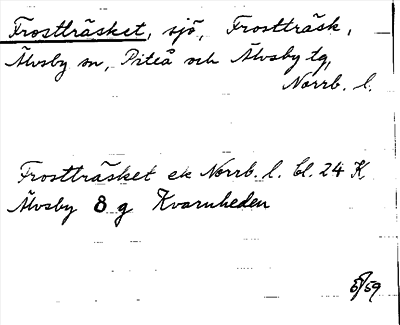 Frostträsket, sjö, Frostträsk,
Älvsby sn, Piteå och Älvsby tg,
Norrb. l.
Frostträsket ek Norrb. l. bl. 24 K
Älvsby 8 g Kvarnheden
5/59